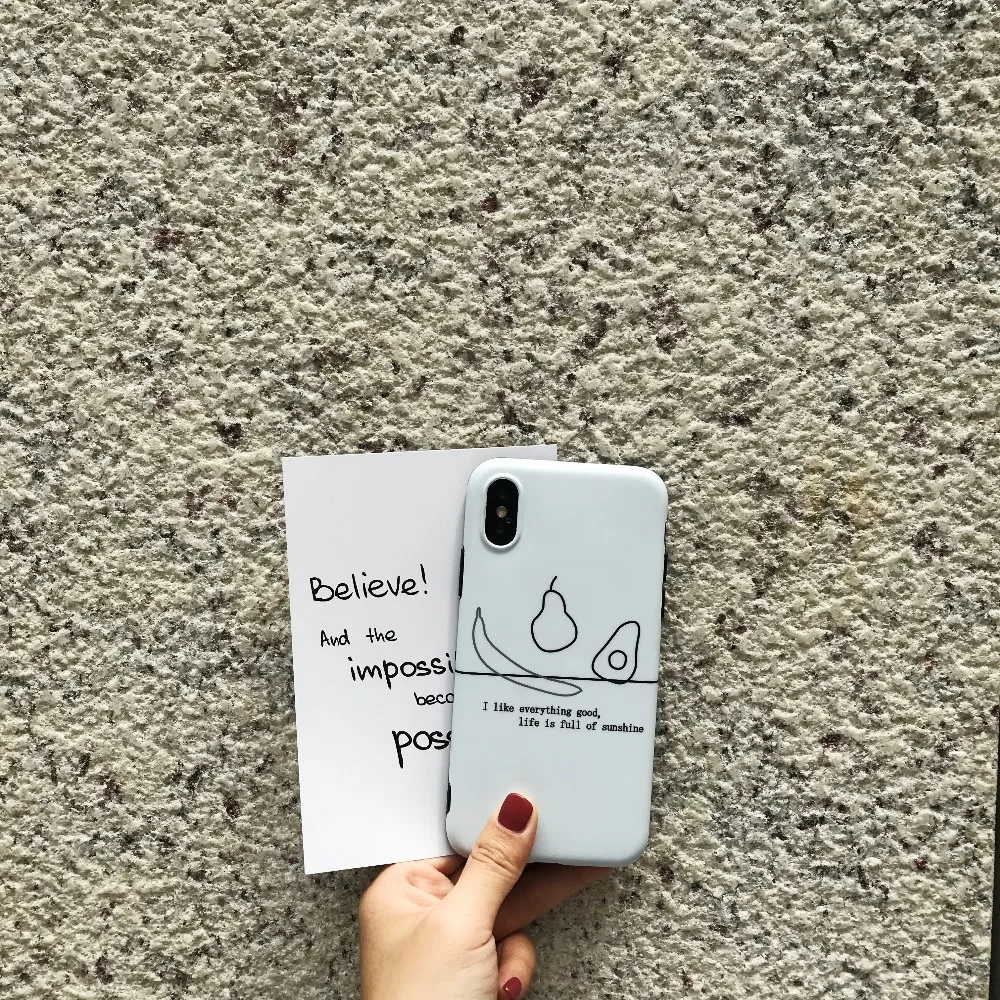 Believe!
And the
impossi
beco
poss
I like everything good,
life is full of sunshine